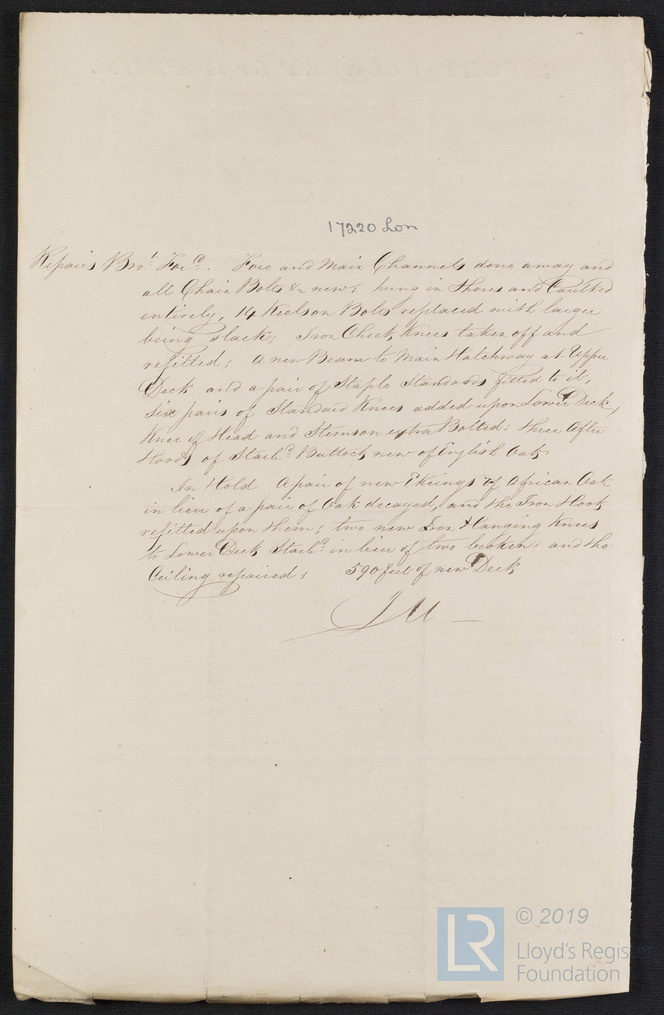 17220 Lon
Repairs Bro.t For.d. Fore and Main Channels done away and
all Chain Bolts &c new; hung in Shores and Caulked
entirely, 14 Keelson Bolts replaced with larger
being slack; Iron Cheek Knees taken off and
refitted; A new Beam to Main Hatchway at Upper
Deck and a pair of Staple Standards fitted to it,
Six pairs of Standard Knees added upon Lower Deck,
Knee of Head and Stemson extra Bolted; three After
Hoods of Starb.d Buttock new of English Oak
In Hold A pair of new Ekeings of African Oak
in lieu of a pair of Oak decayed, and the Iron Hook
refitted upon them; two new Iron Hanging Knees
to Lower Deck Starb.d in lieu of two broken; and the
Ceiling repaired; 590 feet of new Deck
J M
© 2019
Lloyd's Register
Foundation
LR